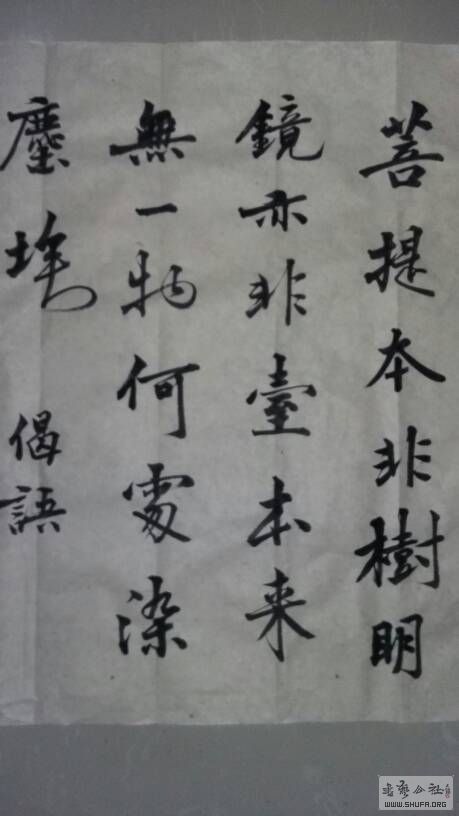 菩提本非樹明
鏡亦非臺本来
無一物何處染
塵埃
偈語
書艺公社
WWW.SHUFA.ORG